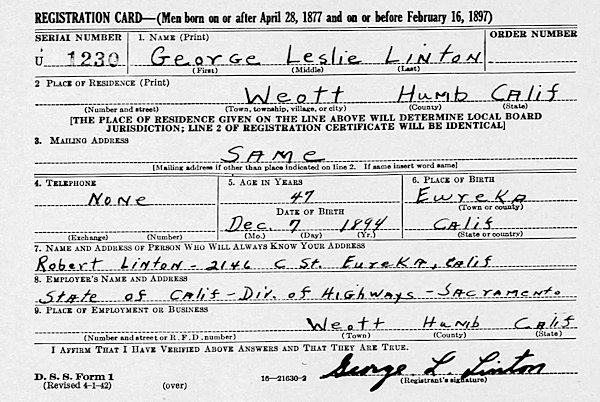 REGISTRATION CARD—(Men born on or after April 28, 1877 and on or before February 16, 1897)
SERIAL NUMBER 1. NAME (Print) ORDER NUMBER
U 1230 George Leslie Linton
(First) (Middle) (Last)
2 PLACE OF RESIDENCE (Print)
Weott Humb Calif
(Number and street) (Town, township, village, or city) (County) (State)
[THE PLACE OF RESIDENCE GIVEN ON THE LINE ABOVE WILL DETERMINE LOCAL BOARD
JURISDICTION; LINE 2 OF REGISTRATION CERTIFICATE WILL BE IDENTICAL]
3. MAILING ADDRESS
SAME
[Mailing address if other than place indicated on line 2. If same insert word same]
4. TELEPHONE 5. AGE IN YEARS 6. PLACE OF BIRTH
None 47 Eureka
DATE OF BIRTH (Town or county)
Dec. 7 1894 Calif
(Exchange) (Number) (Mo.) (Day) (Yr.) (State or country)
7. NAME AND ADDRESS OF PERSON WHO WILL ALWAYS KNOW YOUR ADDRESS
Robert Linton - 2146 C St. Eureka, Calif
8. EMPLOYER'S NAME AND ADDRESS
State of Calif - Div. of Highways - Sacramento
9. PLACE OF EMPLOYMENT OR BUSINESS
Weott Humb Calif
(Number and street or R. F. D. number) (Town) (County) (State)
I AFFIRM THAT I HAVE VERIFIED ABOVE ANSWERS AND THAT THEY ARE TRUE.
George L. Linton
D. S. S. Form 1 (Registrant's signature)
(Revised 4-1-42) (over) 16—21630-2